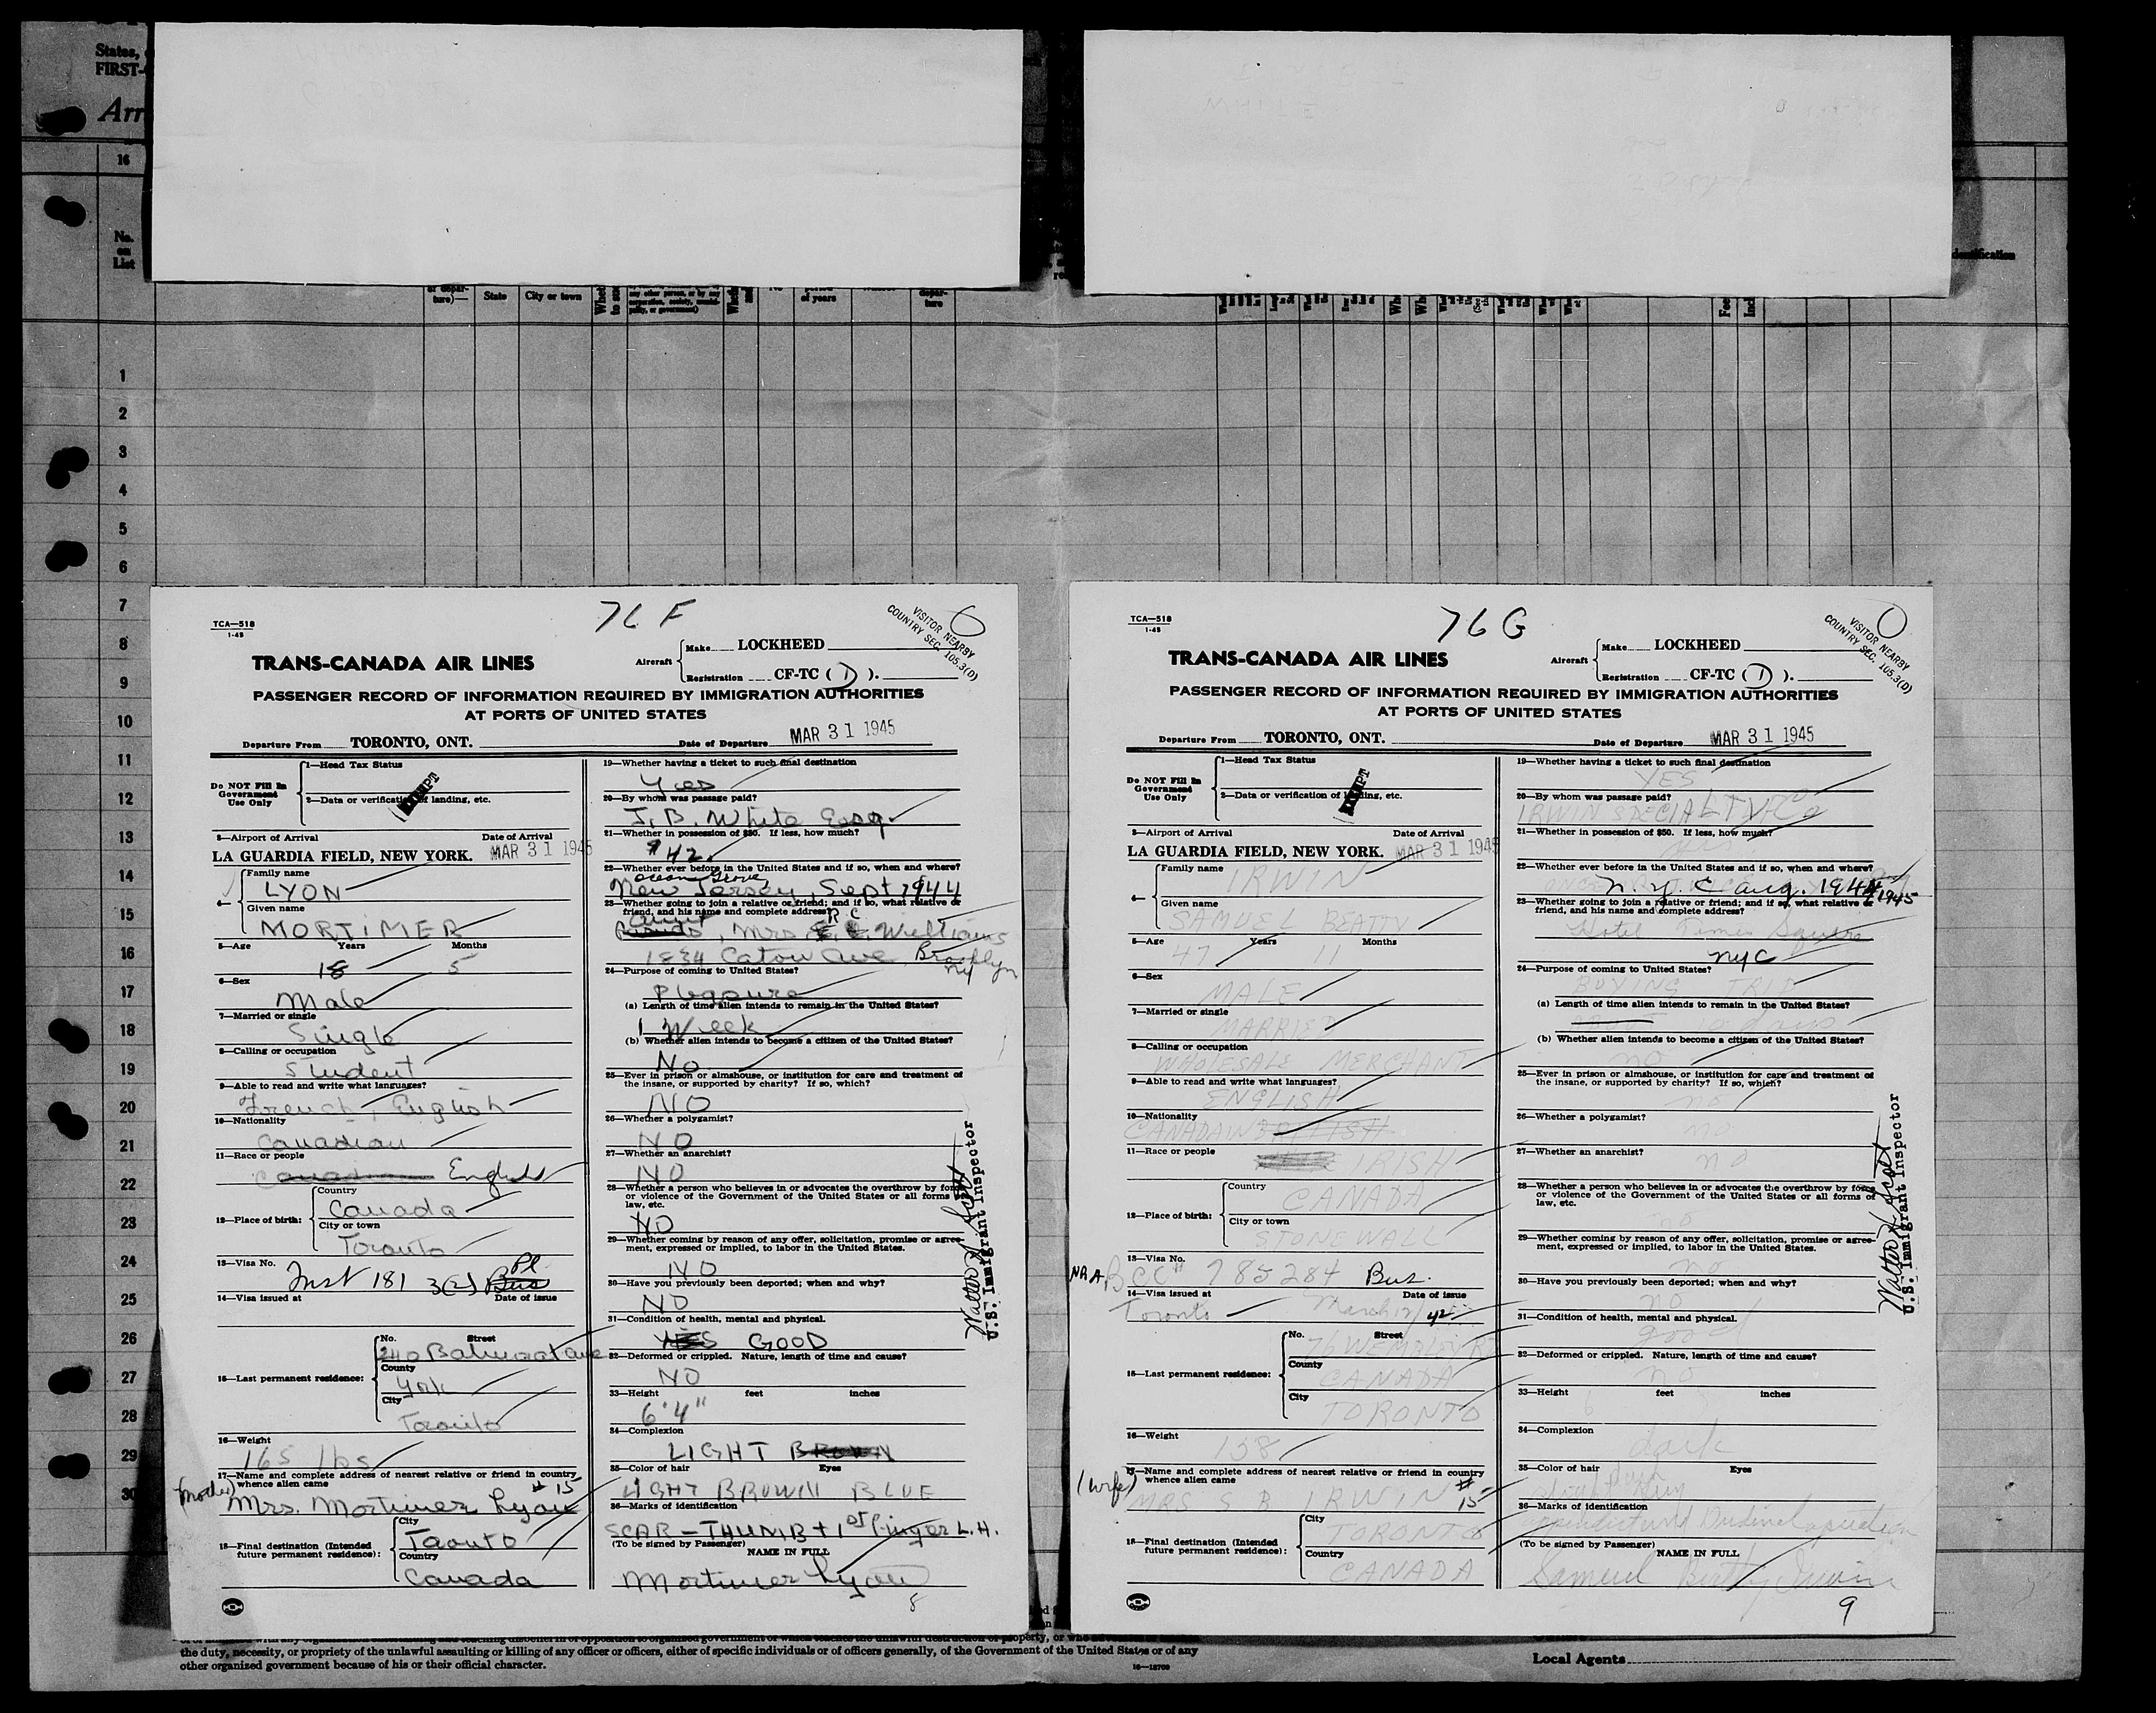 States,
FIRST-
Arr
16
No.
on
List
State
City or town
of years
ture)—
any other person, or by any
corporation, society, munici-
pality, or government)
depar-
ture
identification
1
2
3
4
5
6
7
8
9
10
11
12
13
14
15
16
17
18
19
20
21
22
23
24
25
26
27
28
29
30
76 F
TCA—518
1-45
VISITOR NEARBY
COUNTRY SEC. 105.3(D)
TRANS-CANADA AIR LINES
Aircraft
Make LOCKHEED
Registration CF-TC ( 1 ).
PASSENGER RECORD OF INFORMATION REQUIRED BY IMMIGRATION AUTHORITIES
AT PORTS OF UNITED STATES
Departure From TORONTO, ONT. Date of Departure MAR 31 1945
Do NOT Fill In
Government
Use Only
1—Head Tax Status
2—Data or verification of landing, etc.
3—Airport of Arrival Date of Arrival
LA GUARDIA FIELD, NEW YORK. MAR 31 1945
4—
Family name
LYON
Given name
MORTIMER
5—Age Years Months
18 5
6—Sex
Male
7—Married or single
Single
8—Calling or occupation
Student
9—Able to read and write what languages?
French, English
10—Nationality
Canadian
11—Race or people
Canadian English
12—Place of birth:
Country
Canada
City or town
Toronto
13—Visa No.
Inst 181 3(2) Bus Pl
14—Visa issued at Date of issue
15—Last permanent residence:
No. Street
240 Balmoral ave
County
York
City
Toronto
16—Weight
165 lbs
17—Name and complete address of nearest relative or friend in country
whence alien came # 15
(Mother) Mrs. Mortimer Lyon
18—Final destination (Intended
future permanent residence):
City
Toronto
Country
Canada
19—Whether having a ticket to such final destination
Yes
20—By whom was passage paid?
J. B. White Esq.
21—Whether in possession of $50. If less, how much?
$42.
22—Whether ever before in the United States and if so, when and where?
Ocean Grove
New Jersey, Sept 1944
23—Whether going to join a relative or friend; and if so, what relative or
friend, and his name and complete address?
Mrs. R. C. Williams
1834 Caton Ave Brooklyn
NY
24—Purpose of coming to United States?
Pleasure
(a) Length of time alien intends to remain in the United States?
1 Week
(b) Whether alien intends to become a citizen of the United States?
No
25—Ever in prison or almshouse, or institution for care and treatment of
the insane, or supported by charity? If so, which?
NO
26—Whether a polygamist?
NO
27—Whether an anarchist?
NO
28—Whether a person who believes in or advocates the overthrow by force
or violence of the Government of the United States or all forms of
law, etc.
NO
29—Whether coming by reason of any offer, solicitation, promise or agree-
ment, expressed or implied, to labor in the United States.
NO
30—Have you previously been deported; when and why?
NO
31—Condition of health, mental and physical.
YES GOOD
32—Deformed or crippled. Nature, length of time and cause?
NO
33—Height feet inches
6'4"
34—Complexion
LIGHT BROWN
35—Color of hair Eyes
LIGHT BROWN BLUE
36—Marks of identification
SCAR – THUMB + 1st finger L.H.
(To be signed by Passenger)
NAME IN FULL
Mortimer Lyon
8
Walter H Scott
U.S. Immigrant Inspector
76 G
TCA—518
1-45
VISITOR NEARBY
COUNTRY SEC. 105.3(D)
TRANS-CANADA AIR LINES
Aircraft
Make LOCKHEED
Registration CF-TC ( 1 ).
PASSENGER RECORD OF INFORMATION REQUIRED BY IMMIGRATION AUTHORITIES
AT PORTS OF UNITED STATES
Departure From TORONTO, ONT. Date of Departure MAR 31 1945
Do NOT Fill In
Government
Use Only
1—Head Tax Status
2—Data or verification of landing, etc.
3—Airport of Arrival Date of Arrival
LA GUARDIA FIELD, NEW YORK. MAR 31 1945
4—
Family name
IRWIN
Given name
SAMUEL BEATTY
5—Age Years Months
47 11
6—Sex
MALE
7—Married or single
MARRIED
8—Calling or occupation
WHOLESALE MERCHANT
9—Able to read and write what languages?
ENGLISH
10—Nationality
CANADAIN BRITISH
11—Race or people
IRISH
12—Place of birth:
Country
CANADA
City or town
STONEWALL
13—Visa No.
NRA BCC# 785284 Bus.
14—Visa issued at Date of issue
Toronto March 12/ 42
15—Last permanent residence:
No. Street
76 WEMBLEY RD
County
CANADA
City
TORONTO
16—Weight
158
17—Name and complete address of nearest relative or friend in country
whence alien came
(Wife) MRS S B IRWIN # 15
18—Final destination (Intended
future permanent residence):
City
TORONTO
Country
CANADA
19—Whether having a ticket to such final destination
YES
20—By whom was passage paid?
IRWIN SPECIALTY Co
21—Whether in possession of $50. If less, how much?
yes
22—Whether ever before in the United States and if so, when and where?
N Y C Aug. 1944
1945
23—Whether going to join a relative or friend; and if so, what relative or
friend, and his name and complete address?
Hotel Times Square
NYC
24—Purpose of coming to United States?
BUYING TRIP
(a) Length of time alien intends to remain in the United States?
(b) Whether alien intends to become a citizen of the United States?
no
25—Ever in prison or almshouse, or institution for care and treatment of
the insane, or supported by charity? If so, which?
no
26—Whether a polygamist?
no
27—Whether an anarchist?
no
28—Whether a person who believes in or advocates the overthrow by force
or violence of the Government of the United States or all forms of
law, etc.
no
29—Whether coming by reason of any offer, solicitation, promise or agree-
ment, expressed or implied, to labor in the United States.
no
30—Have you previously been deported; when and why?
no
31—Condition of health, mental and physical.
good
32—Deformed or crippled. Nature, length of time and cause?
no
33—Height feet inches
6
34—Complexion
dark
35—Color of hair Eyes
36—Marks of identification
(To be signed by Passenger)
NAME IN FULL
Samuel Beatty Irwin
9
Walter H Scott
U.S. Immigrant Inspector
the duty, necessity, or propriety of the unlawful assaulting or killing of any officer or officers, either of specific individuals or of officers generally, of the Government of the United States or of any
other organized government because of his or their official character.
16—13700
Local Agents